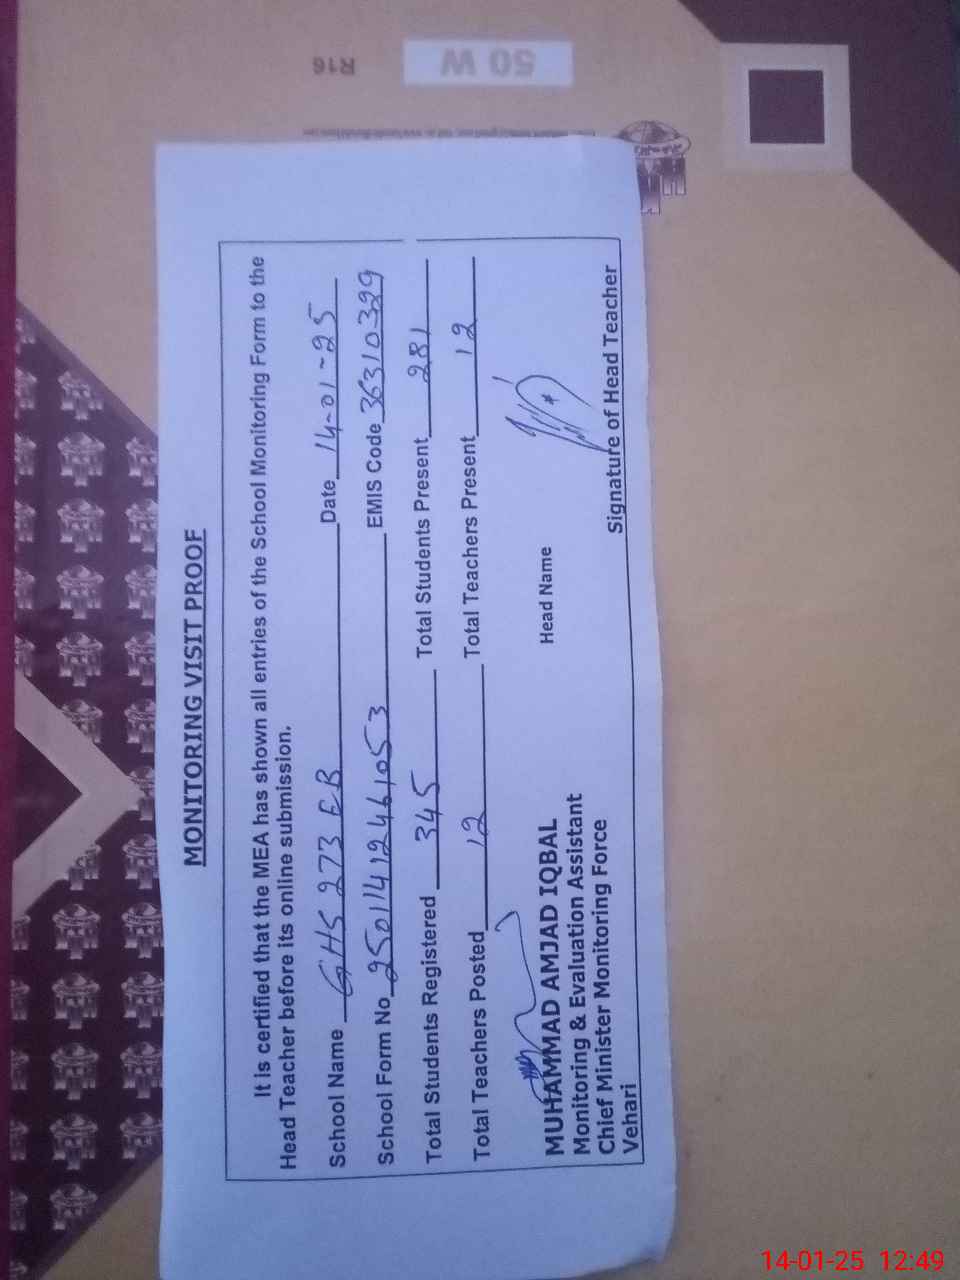 MONITORING VISIT PROOF
It is certified that the MEA has shown all entries of the School Monitoring Form to the
Head Teacher before its online submission.
School Name GHS 273 EB Date 14-01-25
School Form No 25011412461053 EMIS Code 36310329
Total Students Registered 345 Total Students Present 281
Total Teachers Posted 12 Total Teachers Present 12
MUHAMMAD AMJAD IQBAL Head Name
Monitoring & Evaluation Assistant
Chief Minister Monitoring Force
Vehari Signature of Head Teacher
50 W
R16
14-01-25 12:49